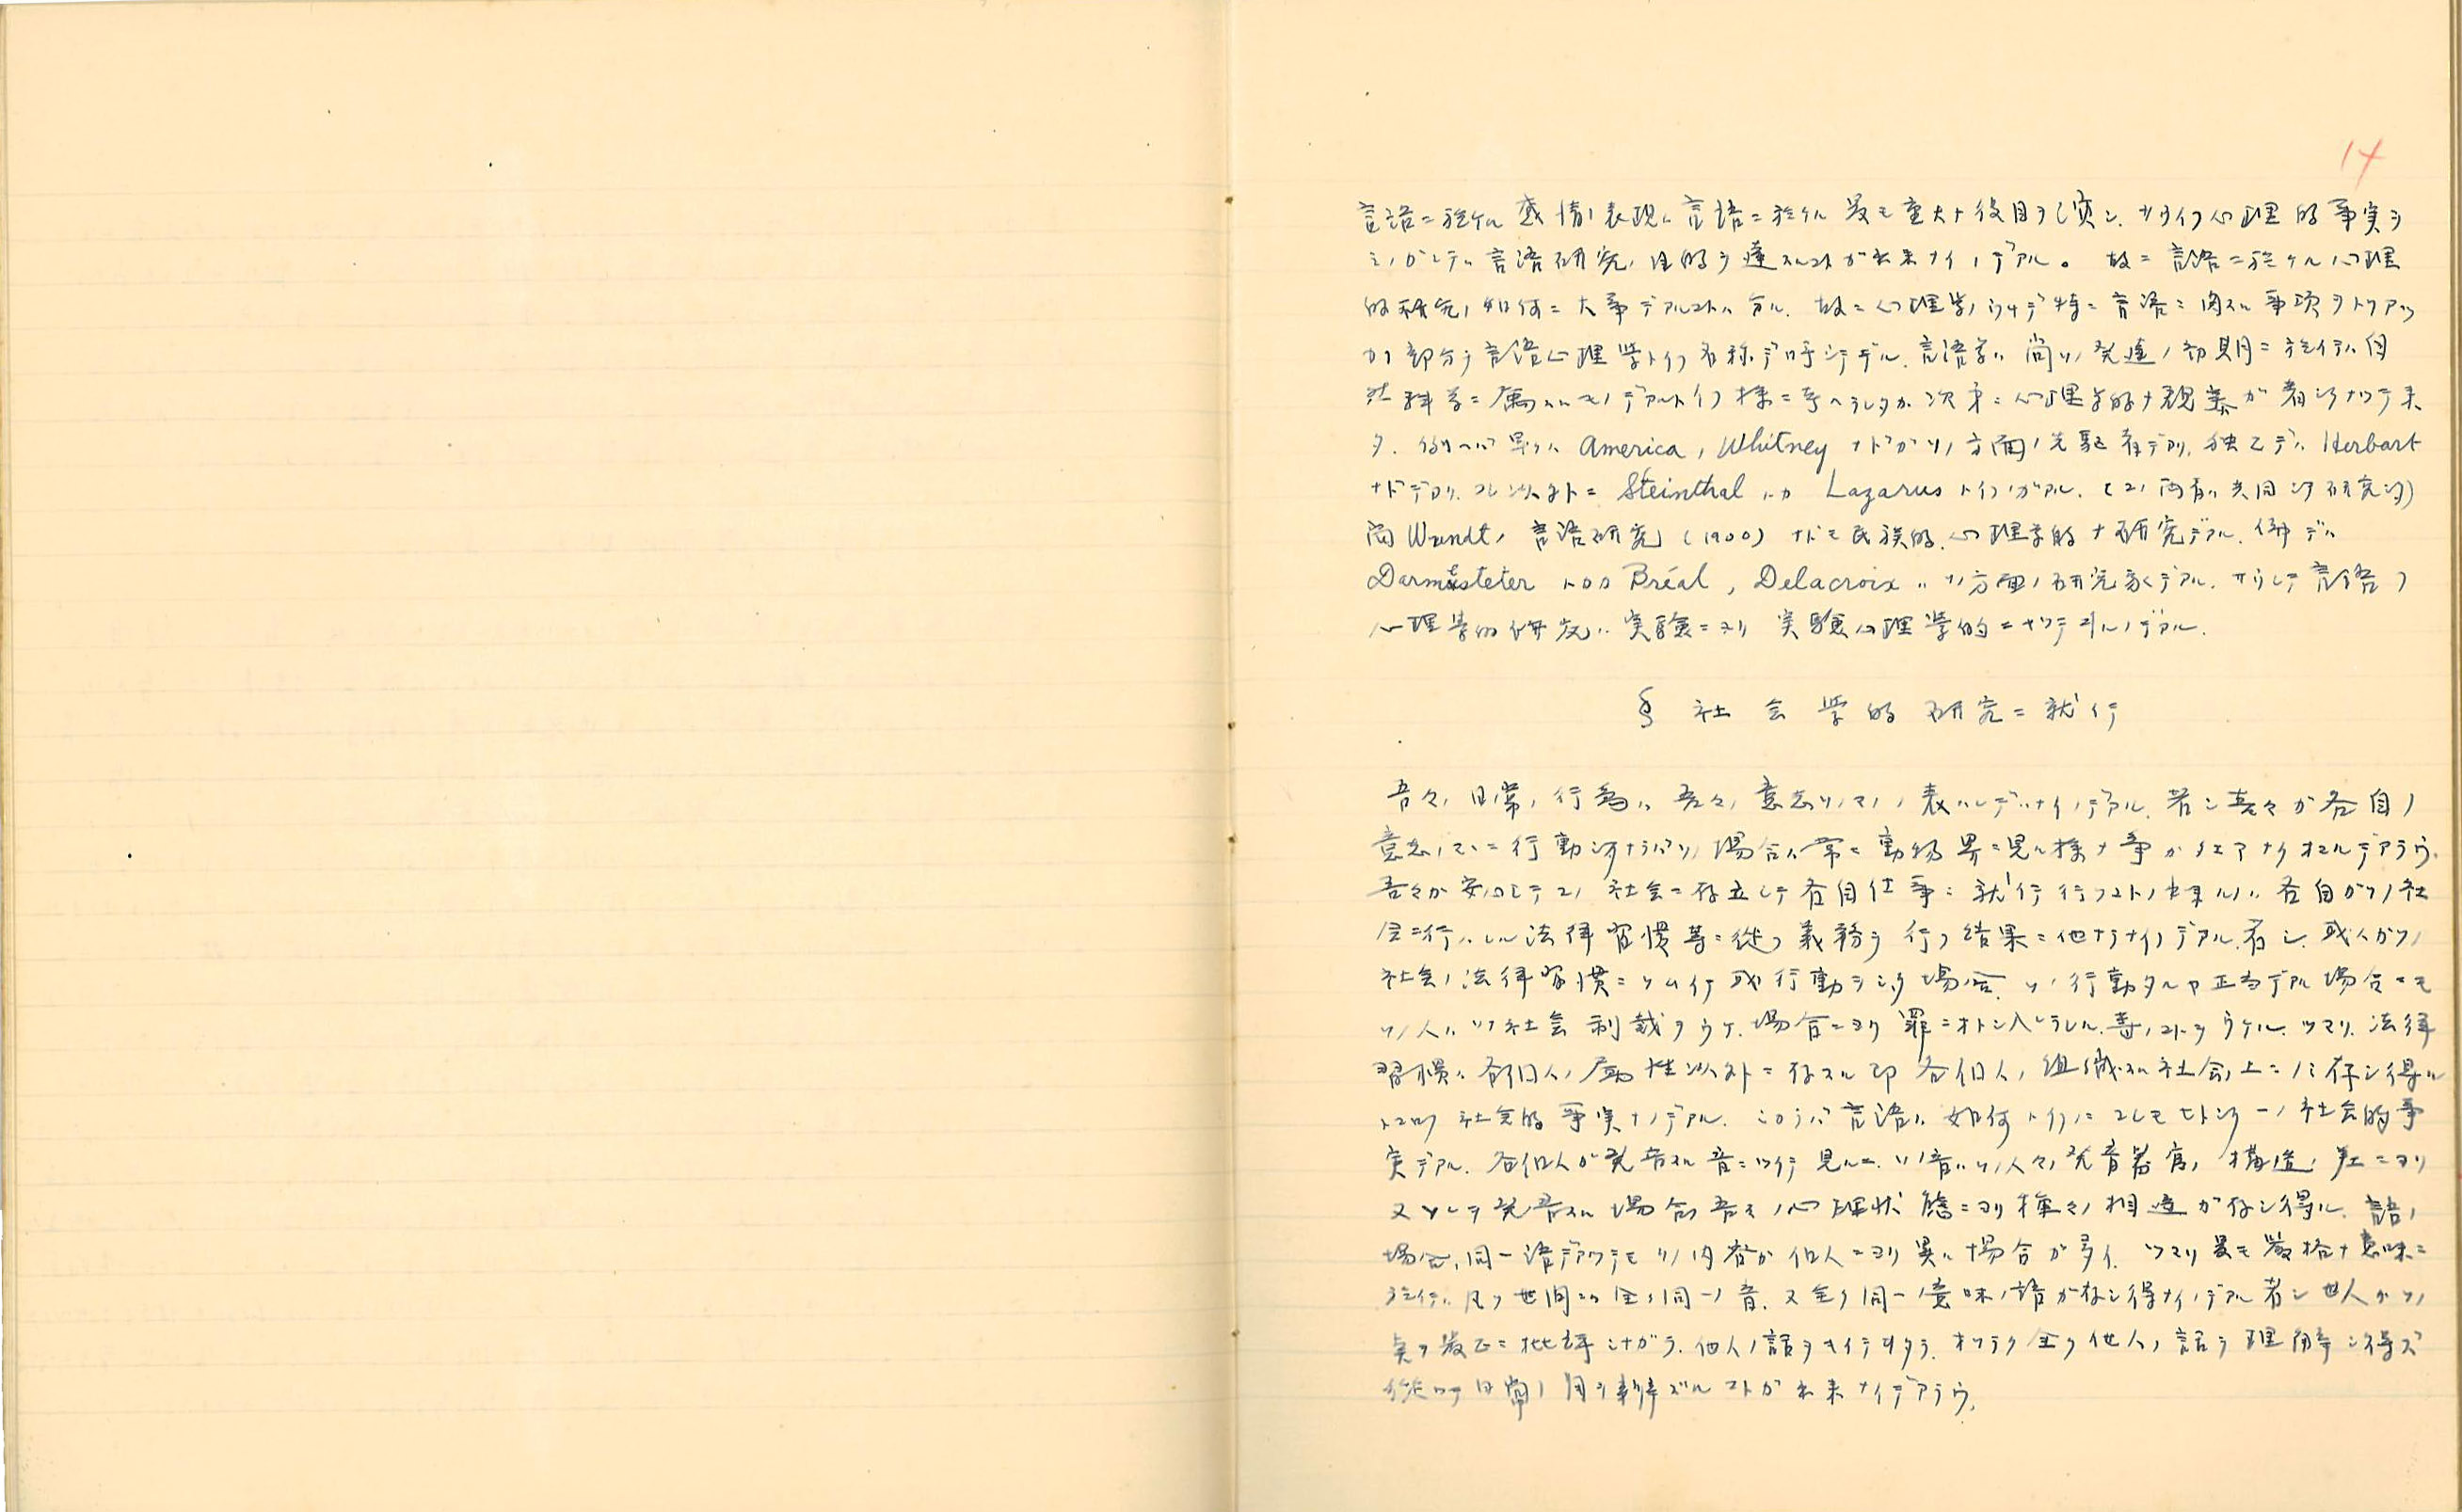 14
言語ニ於ケル感情表現ハ言語ニ於ケル最モ重大ナ役目ヲ演シ、サウイフ心理的事実ヲ
言語研究ノ目的ヲ達スルコトガ出来ナイノデアル。故ニ言語ニ於ケル心理
的研究ノ如何ニ大事デアルコトハ分ル。故ニ心理学ノウチデ特ニ言語ニ関スル事項ヲトリアツ
カフ部分ヲ言語心理学トイフ名称デ呼ンデヰル。言語学ハ尚ソノ発達ノ初期ニ於イテハ自
然科学ニ属スルモノデアルトイフ様ニ考ヘラレタガ次第ニ心理学的ナ観察ガ著シクナツテ来
タ。例ヘバ早クハ America ノ Whitney ナドガソノ方面ノ先駆者デアリ、独乙デハ Herbart
ナドデアリ、コレ以外ニ Steinthal トカ Lazarus トイフノガアル。(コノ両者ハ共同シテ研究シタ)
尚 Wundt ノ言語研究 (1900) ナドモ民族的、心理学的ナ研究デアル。佛デハ
Darmesteter トカ Bréal, Delacroix ハソノ方面ノ研究家デアル。サウシテ言語ノ
心理学的研究ハ実験ニヨリ実験心理学的ニナツテヰルノデアル。
§ 社会学的研究ニ就イテ
吾々ノ日常ノ行為ハ吾々ノ意志ソノマヽノ表ハレデハナイノデアル。若シ吾々ガ各自ノ
意志ノマヽニ行動シタナラバソノ場合ハ常ニ動物界ニ見ル様ナ争ガタエマナクオコルデアラウ。
吾々ガ安心シテコノ社会ニ存立シテ各自仕事ニ就イテ行フコトノ出来ルノハ各自ガソノ社
会ニ行ハレル法律習慣等ニ従フ義務ヲ行フ結果ニ他ナラナイノデアル。若シ、或人ガソノ
社会ノ法律習慣ニソムイテ或行動ヲシタ場合、ソノ行動タルヤ正当デアル場合ニモ
ソノ人ハソノ社会ノ制裁ヲウケ、場合ニヨリ罪ニオトシ入レラレル等ノコトヲウケル。ツマリ、法律
習慣ハ各個人ノ属性以外ニ存スル即各個人ノ組織スル社会ノ上ニノミ存シ得ル
トコロノ社会的事実ナノデアル。シカラバ言語ハ如何トイフニコレモヒトシク一ノ社会的事
実デアル。各個人ガ発音スル音ニツイテ見ルニ、ソノ音ハソノ人々ノ発音器官ノ構造ノ差ニヨリ
又ソレヲ発音スル場合ノ吾々ノ心理状態ニヨリ種々ノ相違ガ存シ得ル。語ノ
場合、同一語デアツテモソノ内容ガ個人ニヨリ異ル場合ガ多イ。ツマリ最モ厳格ナ意味ニ
於イテハ凡ソ世間ニハ全ク同一ノ音、又全ク同一ノ意味ノ語ガ存シ得ナイノデアル。若シ世人ガソノ
点ヲ厳正ニ批評シナガラ、他人ノ話ヲキイテヰタラ、オソラク全ク他人ノ言ヲ理解シ得ズ
従ツテ日常ノ用ヲ弁ズルコトガ出来ナイデアラウ。